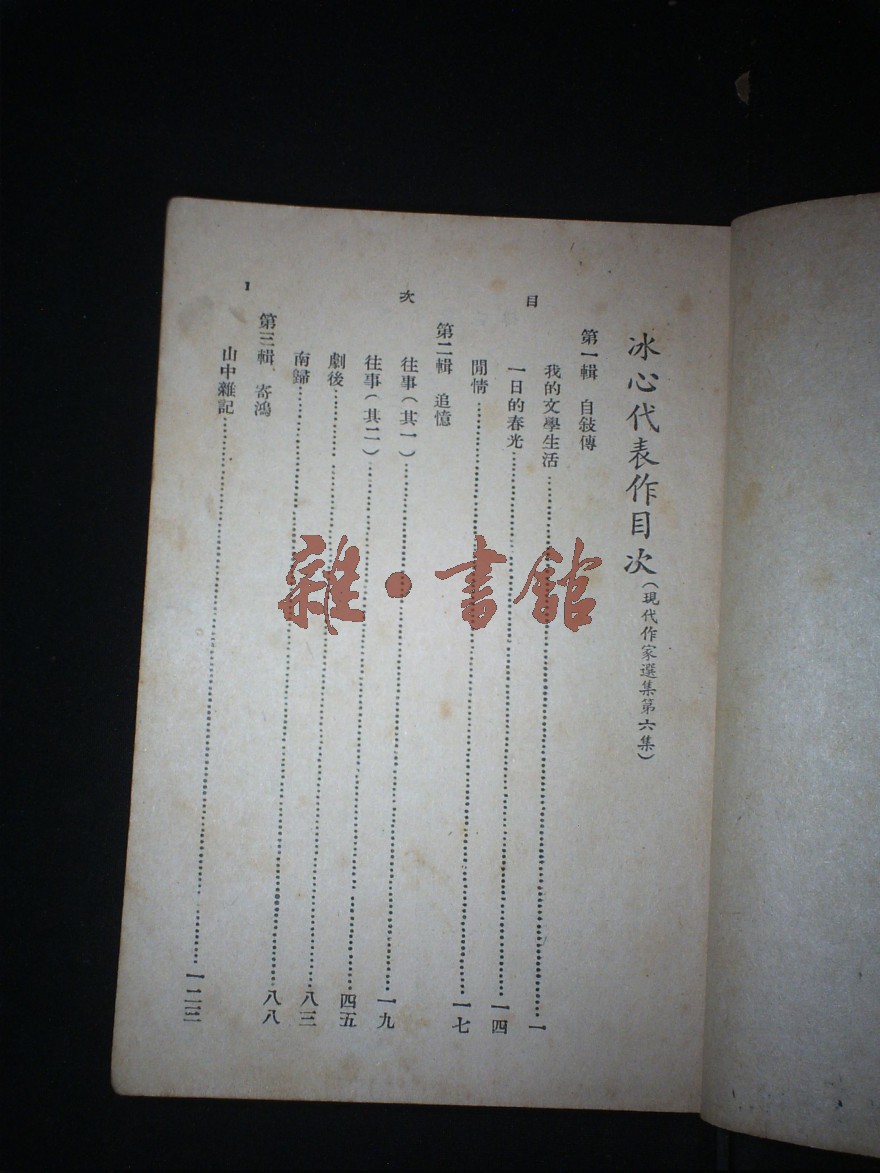 冰心代表作目次（現代作家選集第六集）
第一輯　自敍傳
我的文學生活……一
目
一日的春光……一四
閒情……一七
第二輯　追憶
往事（其一）……一九
次
往事（其二）……四五
劇後……八三
南歸……八八
第三輯　寄鴻
1
山中雜記……一二三
雜·書館